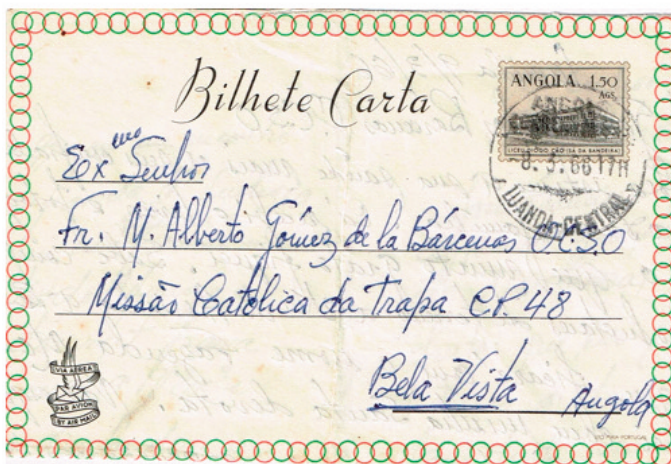 Bilhete Carta
ANGOLA 1.50
AGS.
LICEU DIOGO CÃO (SÁ DA BANDEIRA)
-8. 3. 66 17H
LUANDA-CENTRAL
Exmo Senhor
Fr. M. Alberto Gómez de la Bárcenas O.C.S.O
Missão Católica da Trapa C.P. 48
Bela Vista Angola
VIA AÉREA
PAR AVION
BY AIR MAIL